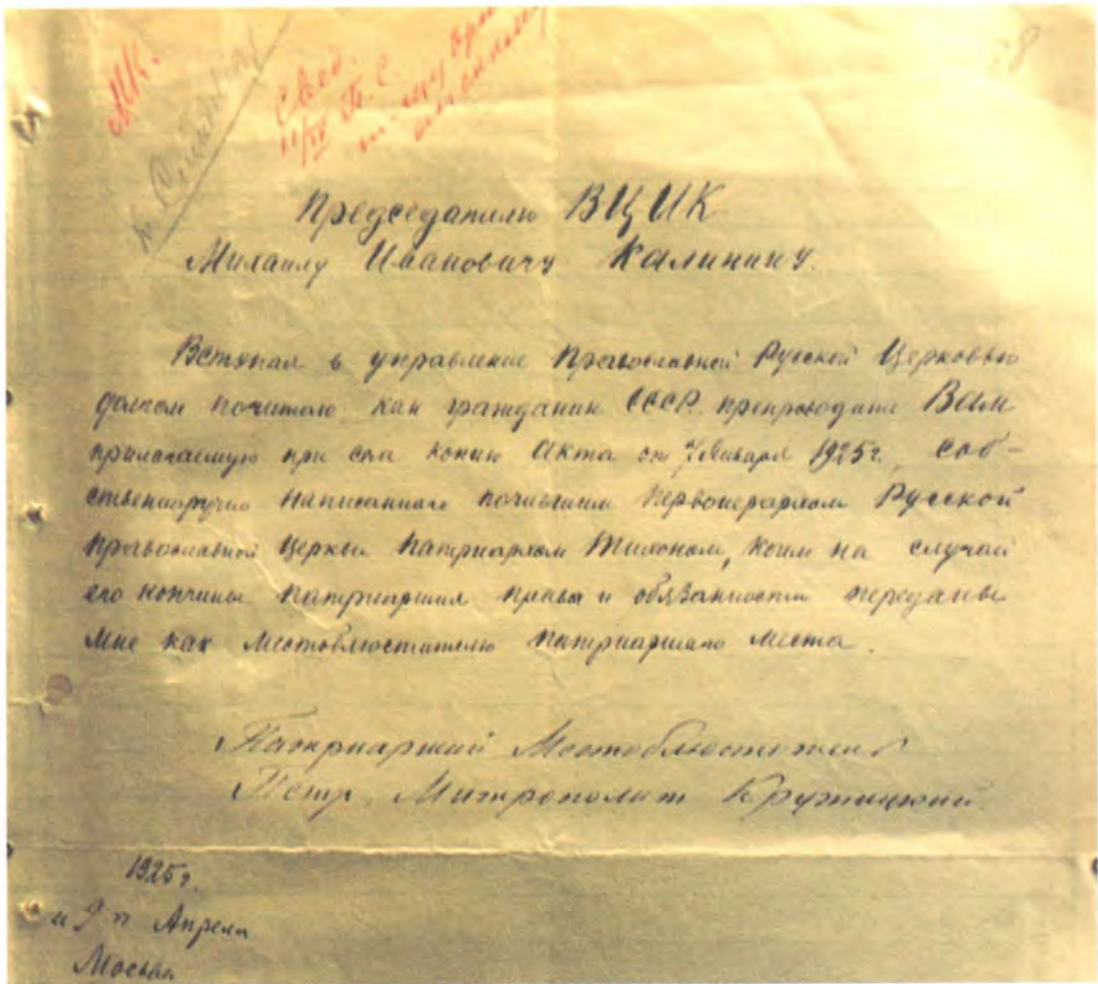 МК.
Свед.
Председателю ВЦИК
Михаилу Ивановичу Калинину.
Вступая в управление Православной Русской Церковью
долгом почитаю как гражданин СССР препроводить Вам
прилагаемую при сем копию Акта от 7 Января 1925 г., соб-
ственноручно написанного почившим Первоиерархом Русской
Православной Церкви Патриархом Тихоном, коим на случай
его кончины патриаршия права и обязанности переданы
мне как Местоблюстителю Патриаршаго места.
Патриарший Местоблюститель
Петр, Митрополит Крутицкий.
1925 г.
„9" Апреля
Москва